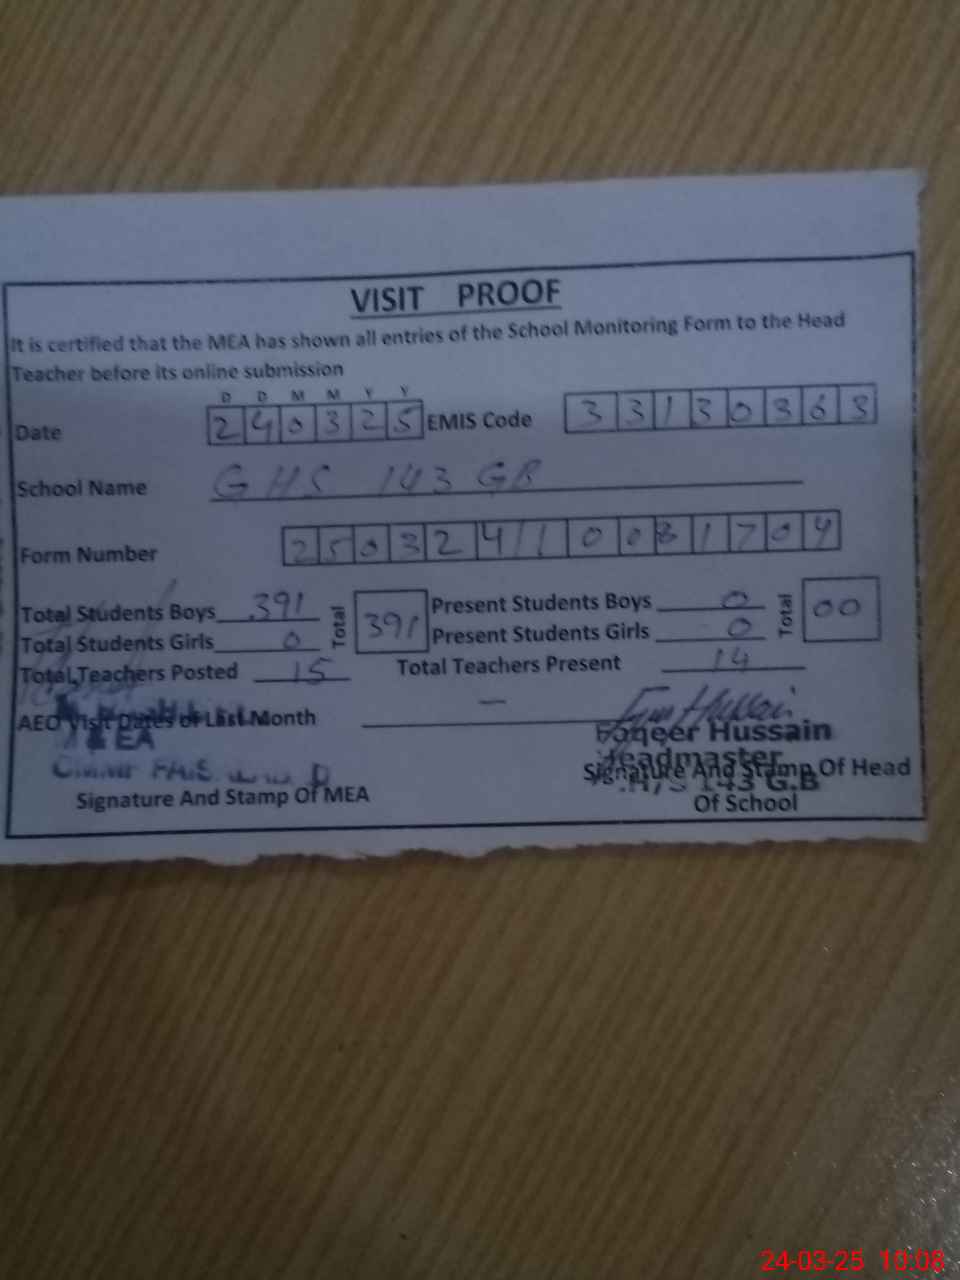 VISIT PROOF
It is certified that the MEA has shown all entries of the School Monitoring Form to the Head
Teacher before its online submission
D D M M Y Y
Date 240325 EMIS Code 33130363
School Name GHS 143 GB
Form Number 250324110081704
Total Students Boys 391 Total 391 Present Students Boys 0 Total 00
Total Students Girls 0 Present Students Girls 0
Total Teachers Posted 15 Total Teachers Present 14
AEO Visit Dates of Last Month —
Faqeer Hussain
Headmaster
143 G.B
Signature And Stamp Of MEA
Signature And Stamp Of Head
Of School
24-03-25 10:08